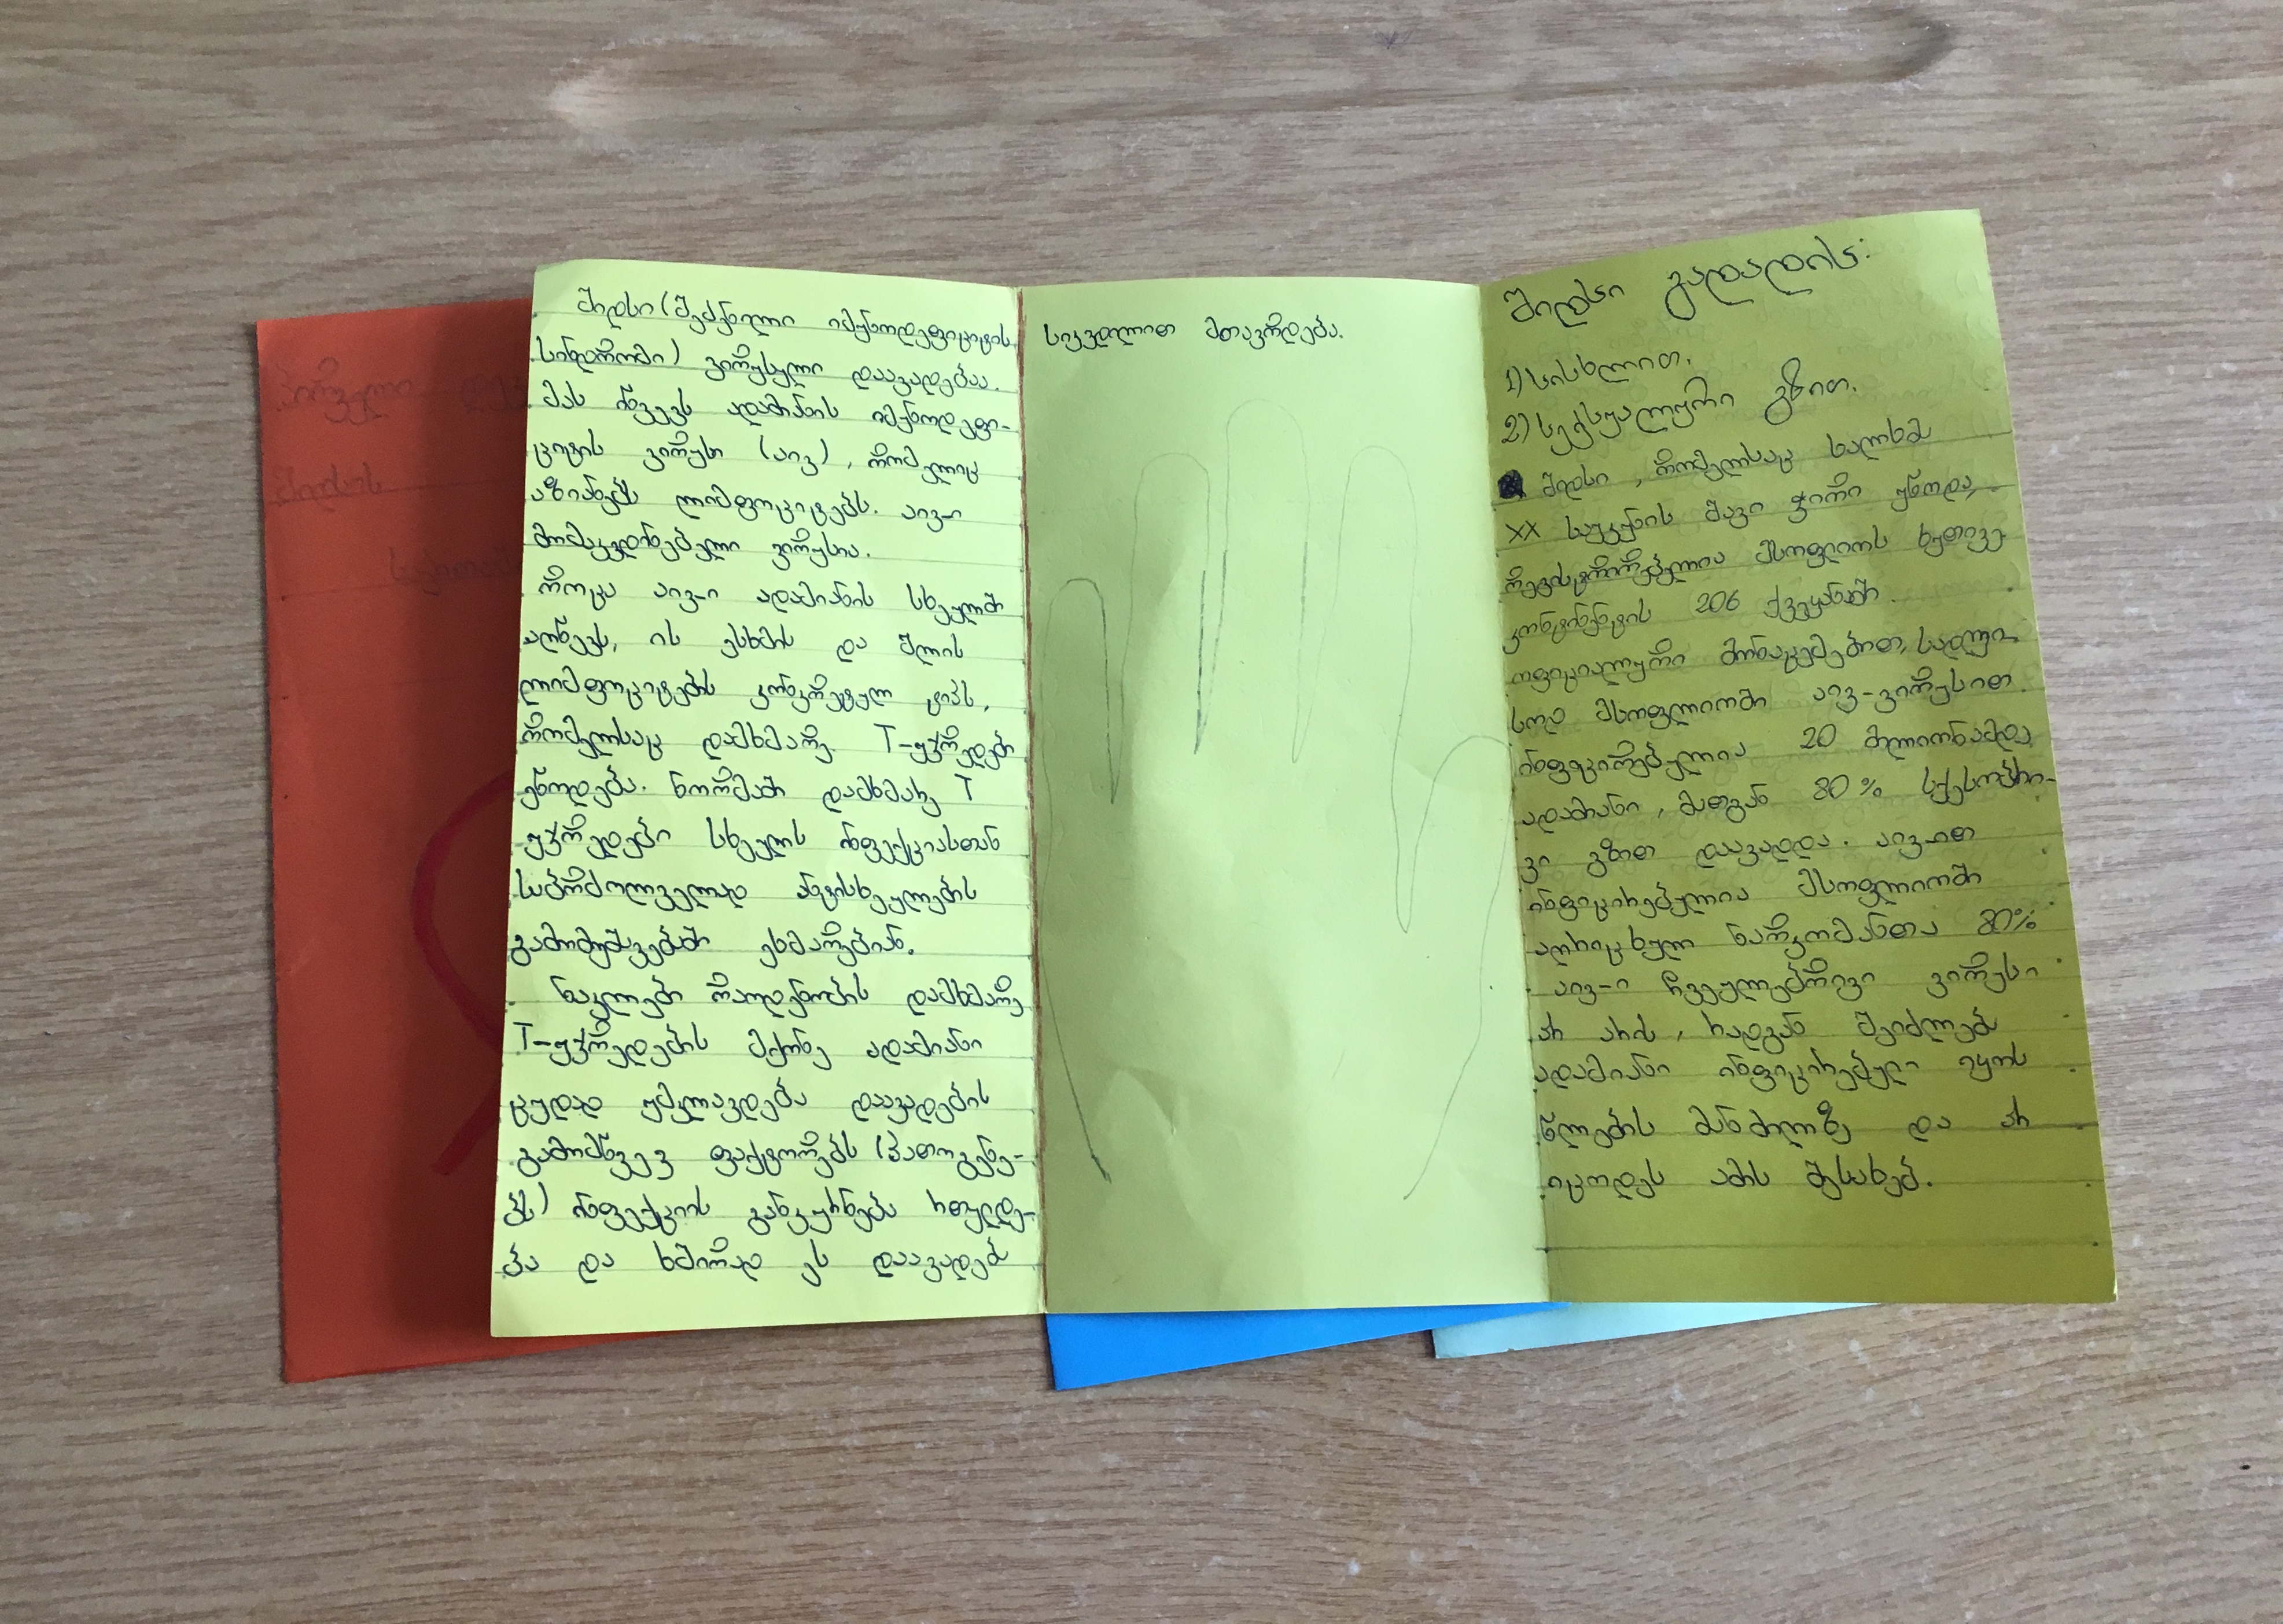 შიდსი (შეძენილი იმუნოდეფიციტის
სინდრომი) ვირუსული დაავადებაა.
მას იწვევს ადამიანის იმუნოდეფი-
ციტის ვირუსი (აივ), რომელიც
აზიანებს ლიმფოციტებს. აივ-ი
მომაკვდინებელი ვირუსია.
როცა აივ-ი ადამიანის სხეულში
აღწევს, ის ესხმის და შლის
ლიმფოციტების კონკრეტულ ტიპს,
რომელსაც დამხმარე T-უჯრედები
ეწოდება. ნორმაში დამხმარე T
უჯრედები სხეულს ინფექციასთან
საბრძოლველად ანტისხეულების
გამომუშავებაში ეხმარებიან.
ნაკლები რაოდენობის დამხმარე
T-უჯრედების მქონე ადამიანი
ცუდად უმკლავდება დაავადების
გამომწვევ ფაქტორებს (პათოგენე-
ბს) ინფექციის განკურნება რთულდე-
ბა და ხშირად ეს დაავადება
სიკვდილით მთავრდება.
შიდსი გადადის:
1) სისხლით.
2) სექსუალური გზით.
შიდსი, რომელსაც ხალხმა
XX საუკუნის შავი ჭირი უწოდა,
რეგისტრირებულია მსოფლიოს ხუთივე
კონტინენტის 206 ქვეყანაში.
ოფიციალური მონაცემებით, სადღეი-
სოდ მსოფლიოში აივ-ვირუსით
ინფიცირებულია 20 მილიონამდე
ადამიანი, მათგან 80% სქესობრი-
ვი გზით დაავადდა. აივ-ით
ინფიცირებულია მსოფლიოში
აღრიცხული ნარკომანთა 80%
აივ-ი ჩვეულებრივი ვირუსი
არ არის, რადგან შეიძლება
ადამიანი ინფიცირებული იყოს
წლების მანძილზე და არ
იცოდეს ამის შესახებ.
პირველი
შიდსის